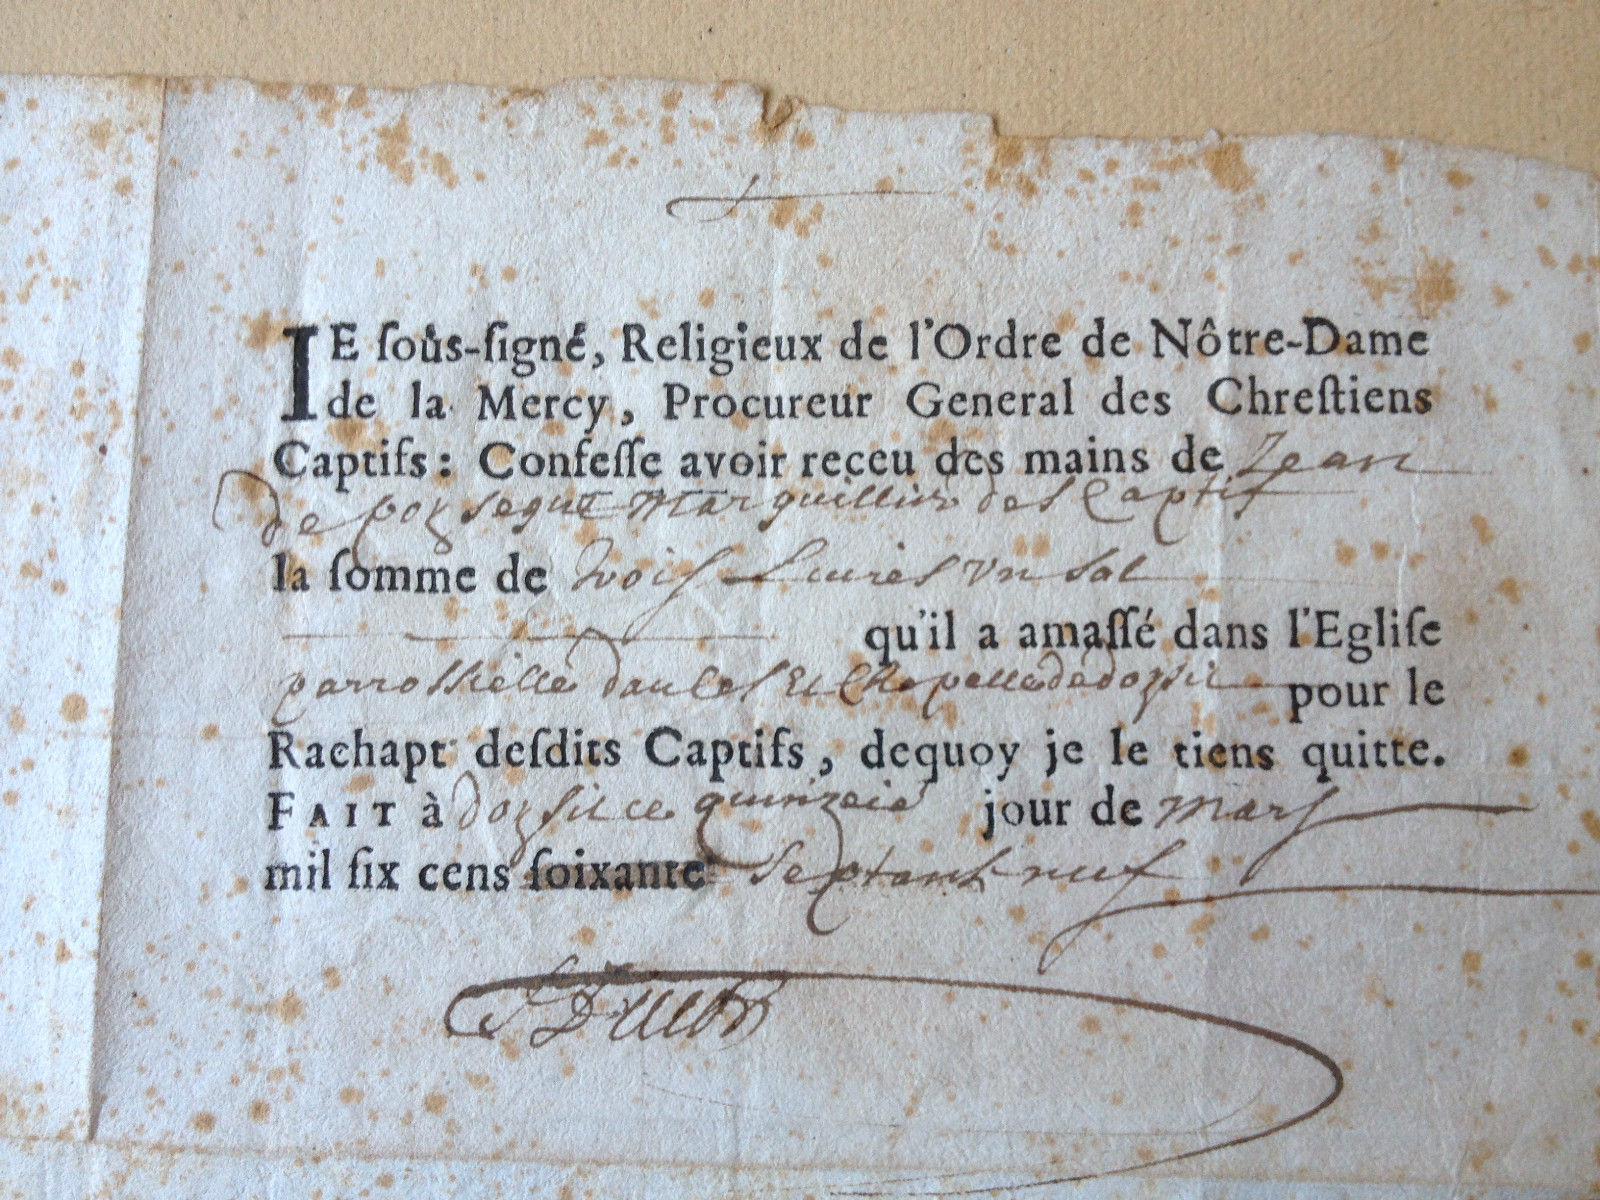 JE ſoùs-ſigné, Religieux de l'Ordre de Nôtre-Dame
de la Mercy, Procureur General des Chreſtiens
Captifs: Confeſſe avoir reçeu des mains de Jean
de marguillier des Captifs
la ſomme de trois Liures vn sol
qu'il a amaſſé dans l'Egliſe
parrossielle pour le
Rachapt deſdits Captifs, dequoy je le tiens quitte.
FAIT à ce jour de mars
mil ſix cens ſoixante septante neuf